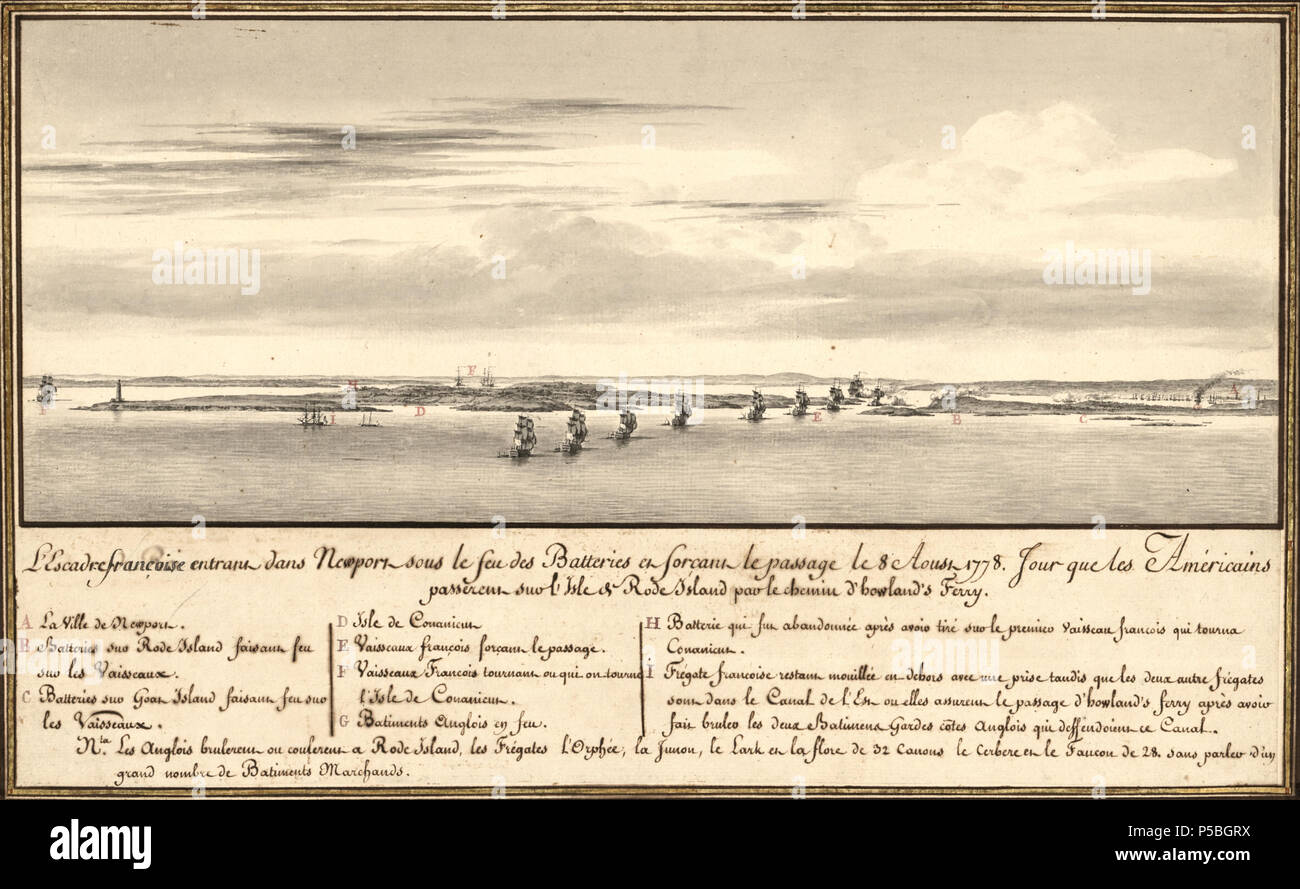 F
H
A
F
I
D
E
B
C
G
L'Escadre françoise entrant dans Newport sous le feu des Batteries et forçant le passage le 8 Aoust 1778. Jour que les Américains
passèrent sur l'Isle de Rode Island par le chemin d'howland's Ferry.
A La Ville de Newport.
B Batteries sur Rode Island faisant feu
sur les Vaisseaux.
C Batteries sur Goat Island faisant feu sur
les Vaisseaux.
D Isle de Conanicut
E Vaisseaux françois forçant le passage.
F Vaisseaux François tournant ou qui ont tourné
l'Isle de Conanicut.
G Batiments Anglois en feu.
H Batterie qui fut abandonnée après avoir tiré sur le premier Vaisseau francois qui tourna
Conanicut.
I Frégate francoise restant mouillée en dehors avec une prise tandis que les deux autre frégates
sont dans le Canal de l'Est ou elles assurent le passage d'howland's ferry après avoir
fait bruler les deux Batimens Gardes côtes Anglois qui deffendoient ce Canal.
Nta. Les Anglois brulerent ou coulerent a Rode Island, les Frégates l'Orphée, la Junon, le Lark et la flore de 32 Canons le Cerbere et le Faucon de 28. sans parler d'un
grand nombre de Batiments Marchands.
alamy
Image ID: P5BGRX
www.alamy.com